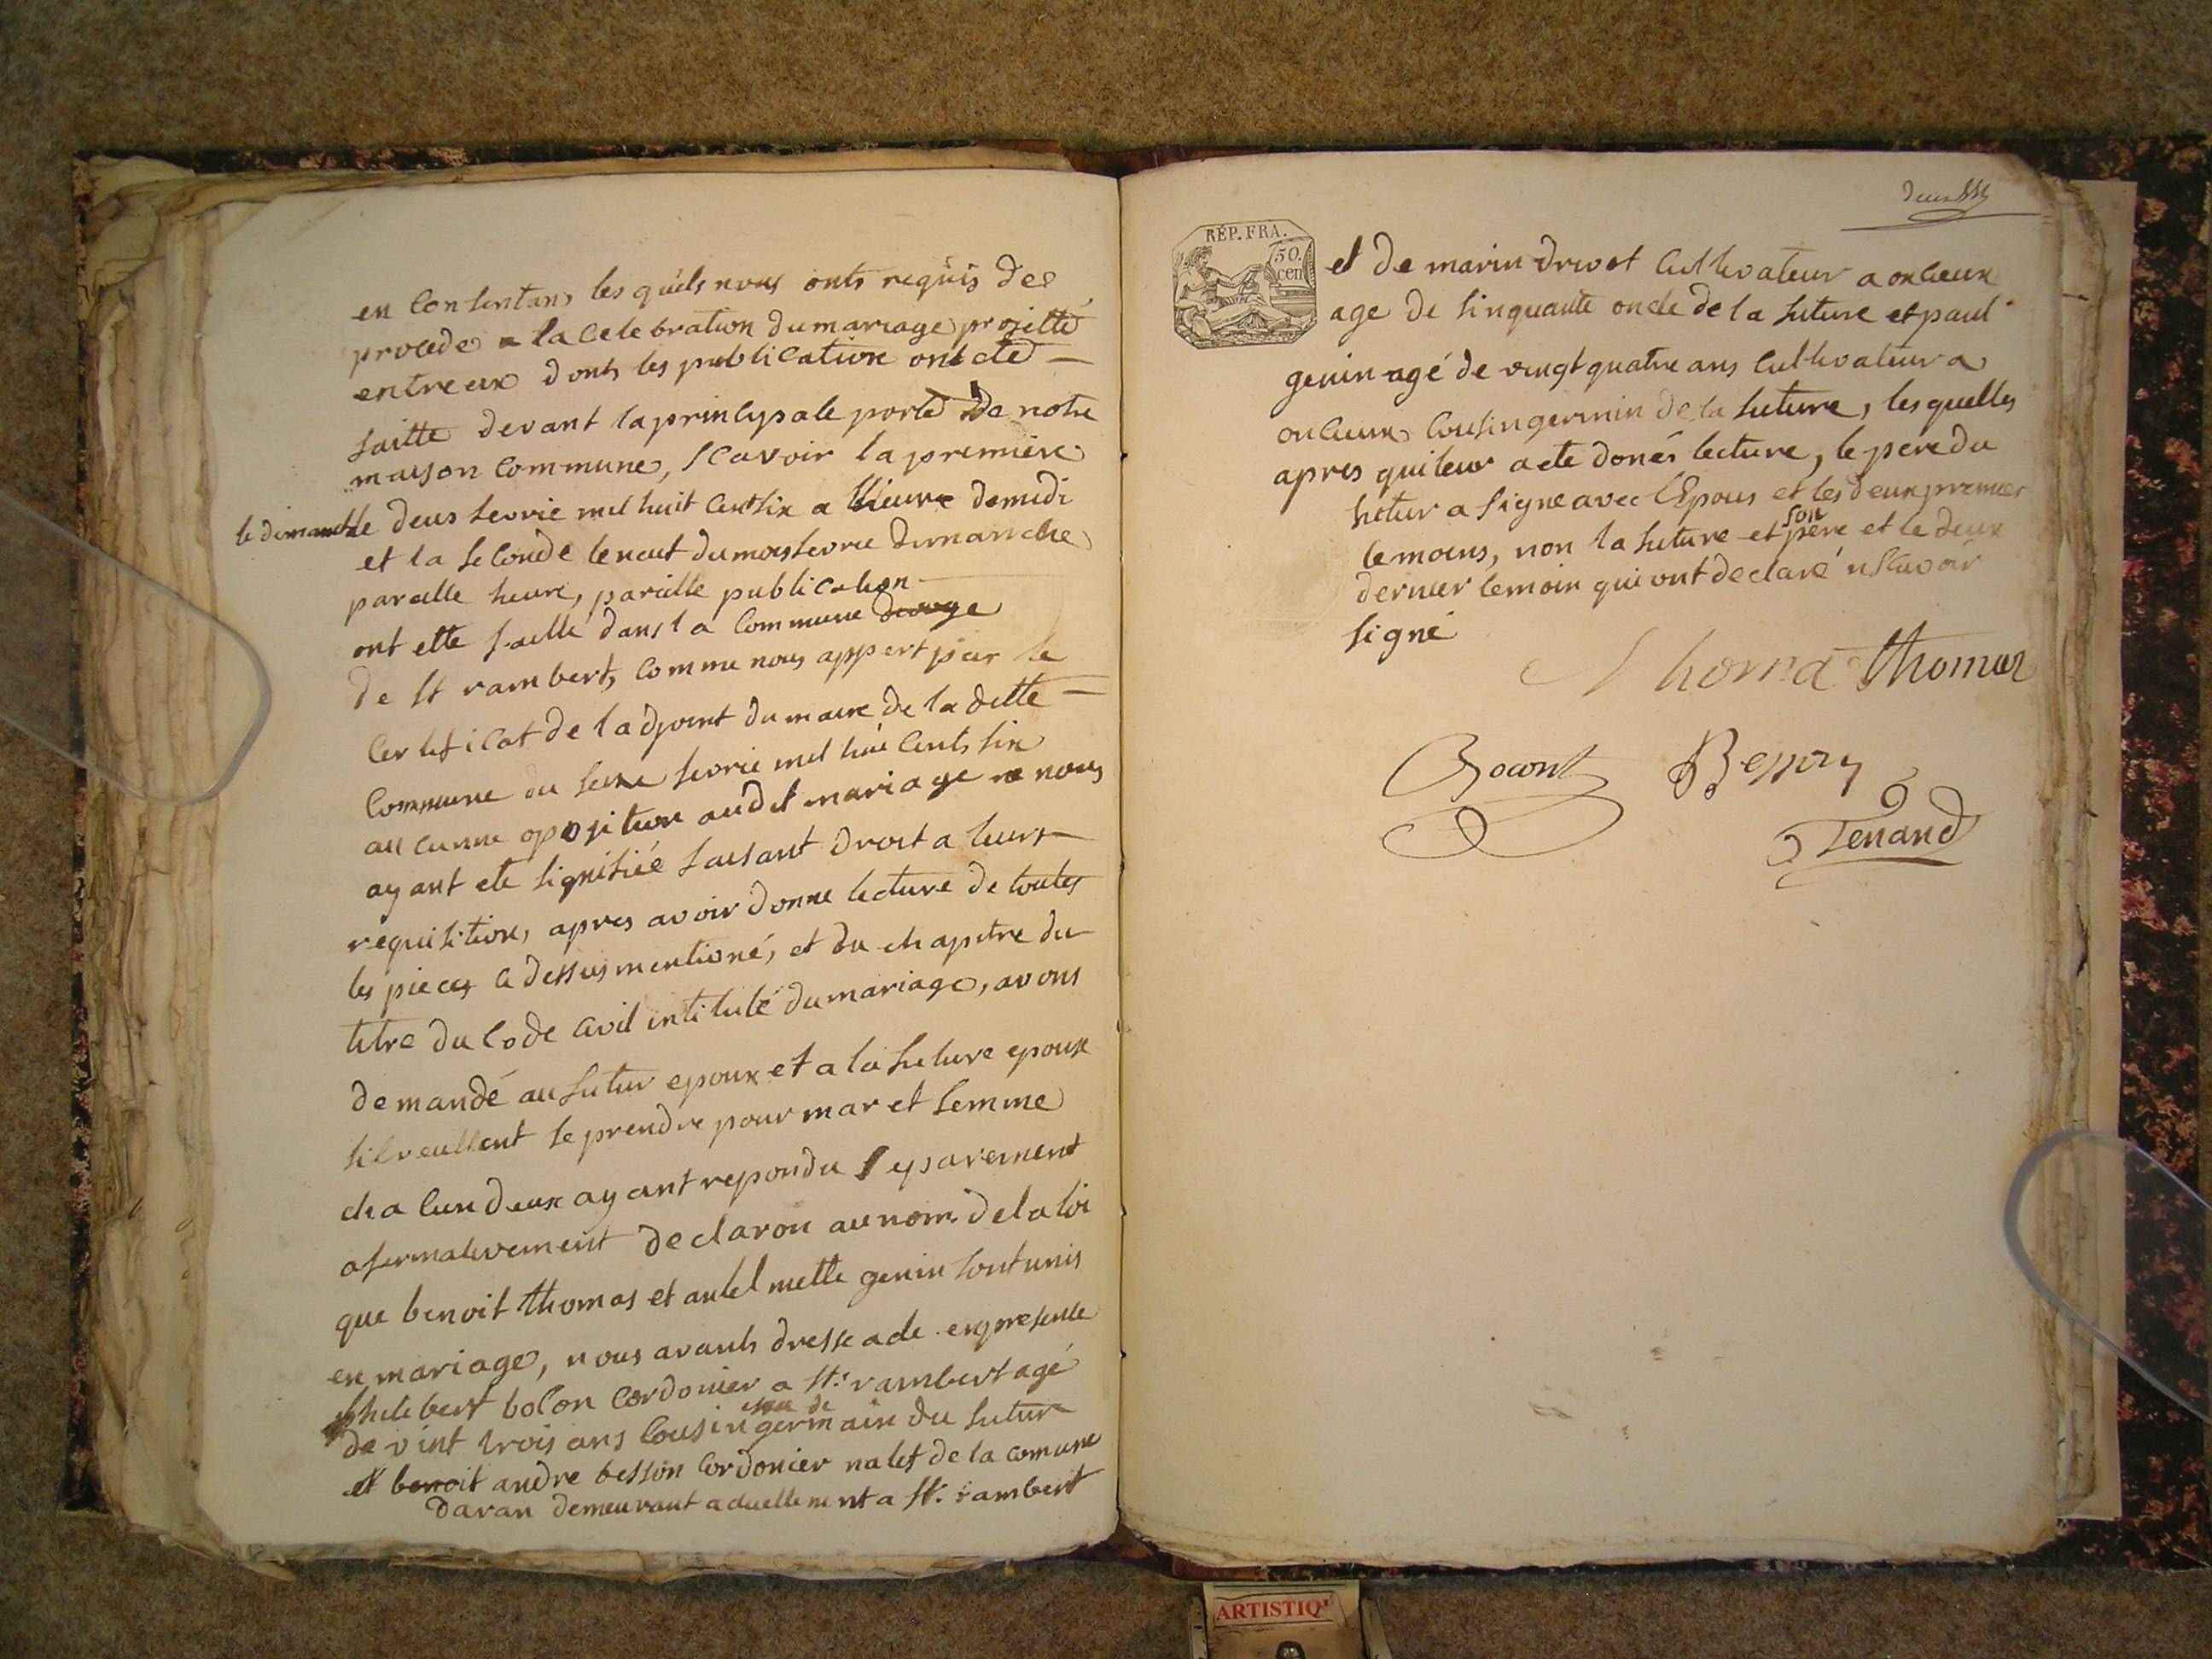 en consentans les quels nous onts requis de
procede a la celebration du mariage projetté
entre eux donts les publication ont eté
faitte devant la principale porte de notre
maison commune, scavoir la premiere
le dimanche le deus fevrie mil huit cent six a l'heure de midi
et la seconde le neuf du mois fevrie dimanche
pareille heure, pareille publication
ont ette faitte dans la commune
de St rambert, comme nous appert par le
certificat de l adjoint du maire de la ditte
commune du seize fevrie mil hui cents six
aucunne oposition audit mariage ne nous
ayant ete signifiée faisant droit a leurs
requisition, apres avoir donne lecture de toutes
les pieces ci dessus mentioné, et du chapitre du
titre du code civil intitulé du mariage, avons
demandé au futur epoux et a la future epoux
sil veullent se prendre pour mar et femme
chacun deux ayant repondu separement
afermativement declaron au nom de la loi
que benoit thomas et antelmette genin sont unis
en mariage, nous avonts dresse acte en presence
philibert bolon cordonier a St. rambert agé
de vint trois ans cousin issu de germain du futur
et benoit andre besson cordonier natif de la comune
daran demeurant actuellement a St. rambert
RÉP. FRA.
50.
cen
et de marin drivet cultivateur a oncieux
age de sinquante oncle de la future et paul
genin agé de vingt quatre ans cultivateur a
oncieux cousin germin de la future, les quelles
apres qui leur a ete donés lecture, le pere du
futur a signe avec l'Epous et les deux premier
temoins, non la future et son père et le deux
dernier temoin qui ont declaré n scavoir
signé
thoma thomas
Bocont Besson
Tenand
ARTISTIQ